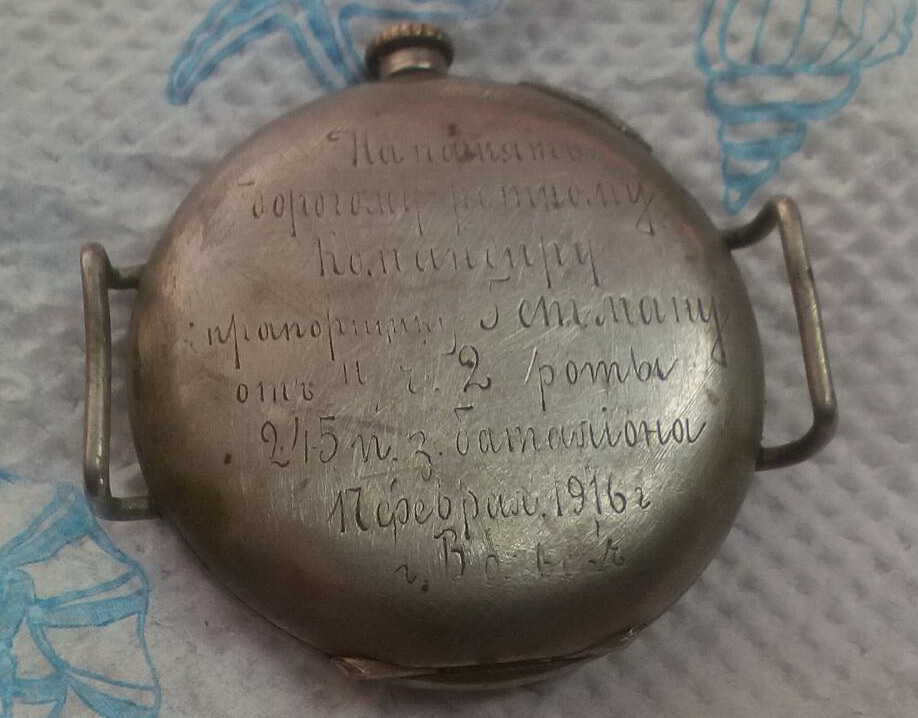 На память
дорогому ротному
Командиру
прапорщику Гетману
отъ н. ч. 2 роты
245 п. з. баталіона
17 феврал. 1916 г
г.